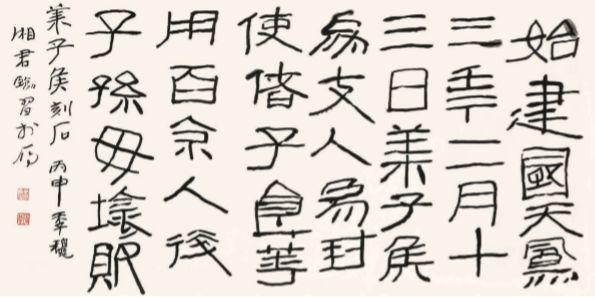 始建國天鳳
三年二月十
三日萊子侯
為支人為封
使偖子食等
用百余人後
子孫毋壞敗
萊子侯刻石 丙申季穐
湘君臨習於